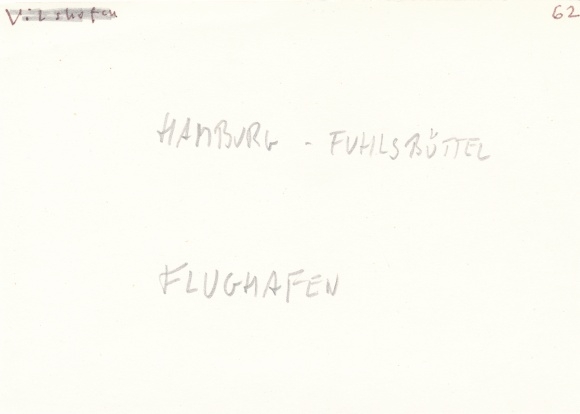 Vilshofen
62
HAMBURG - FUHLSBÜTTEL
FLUGHAFEN